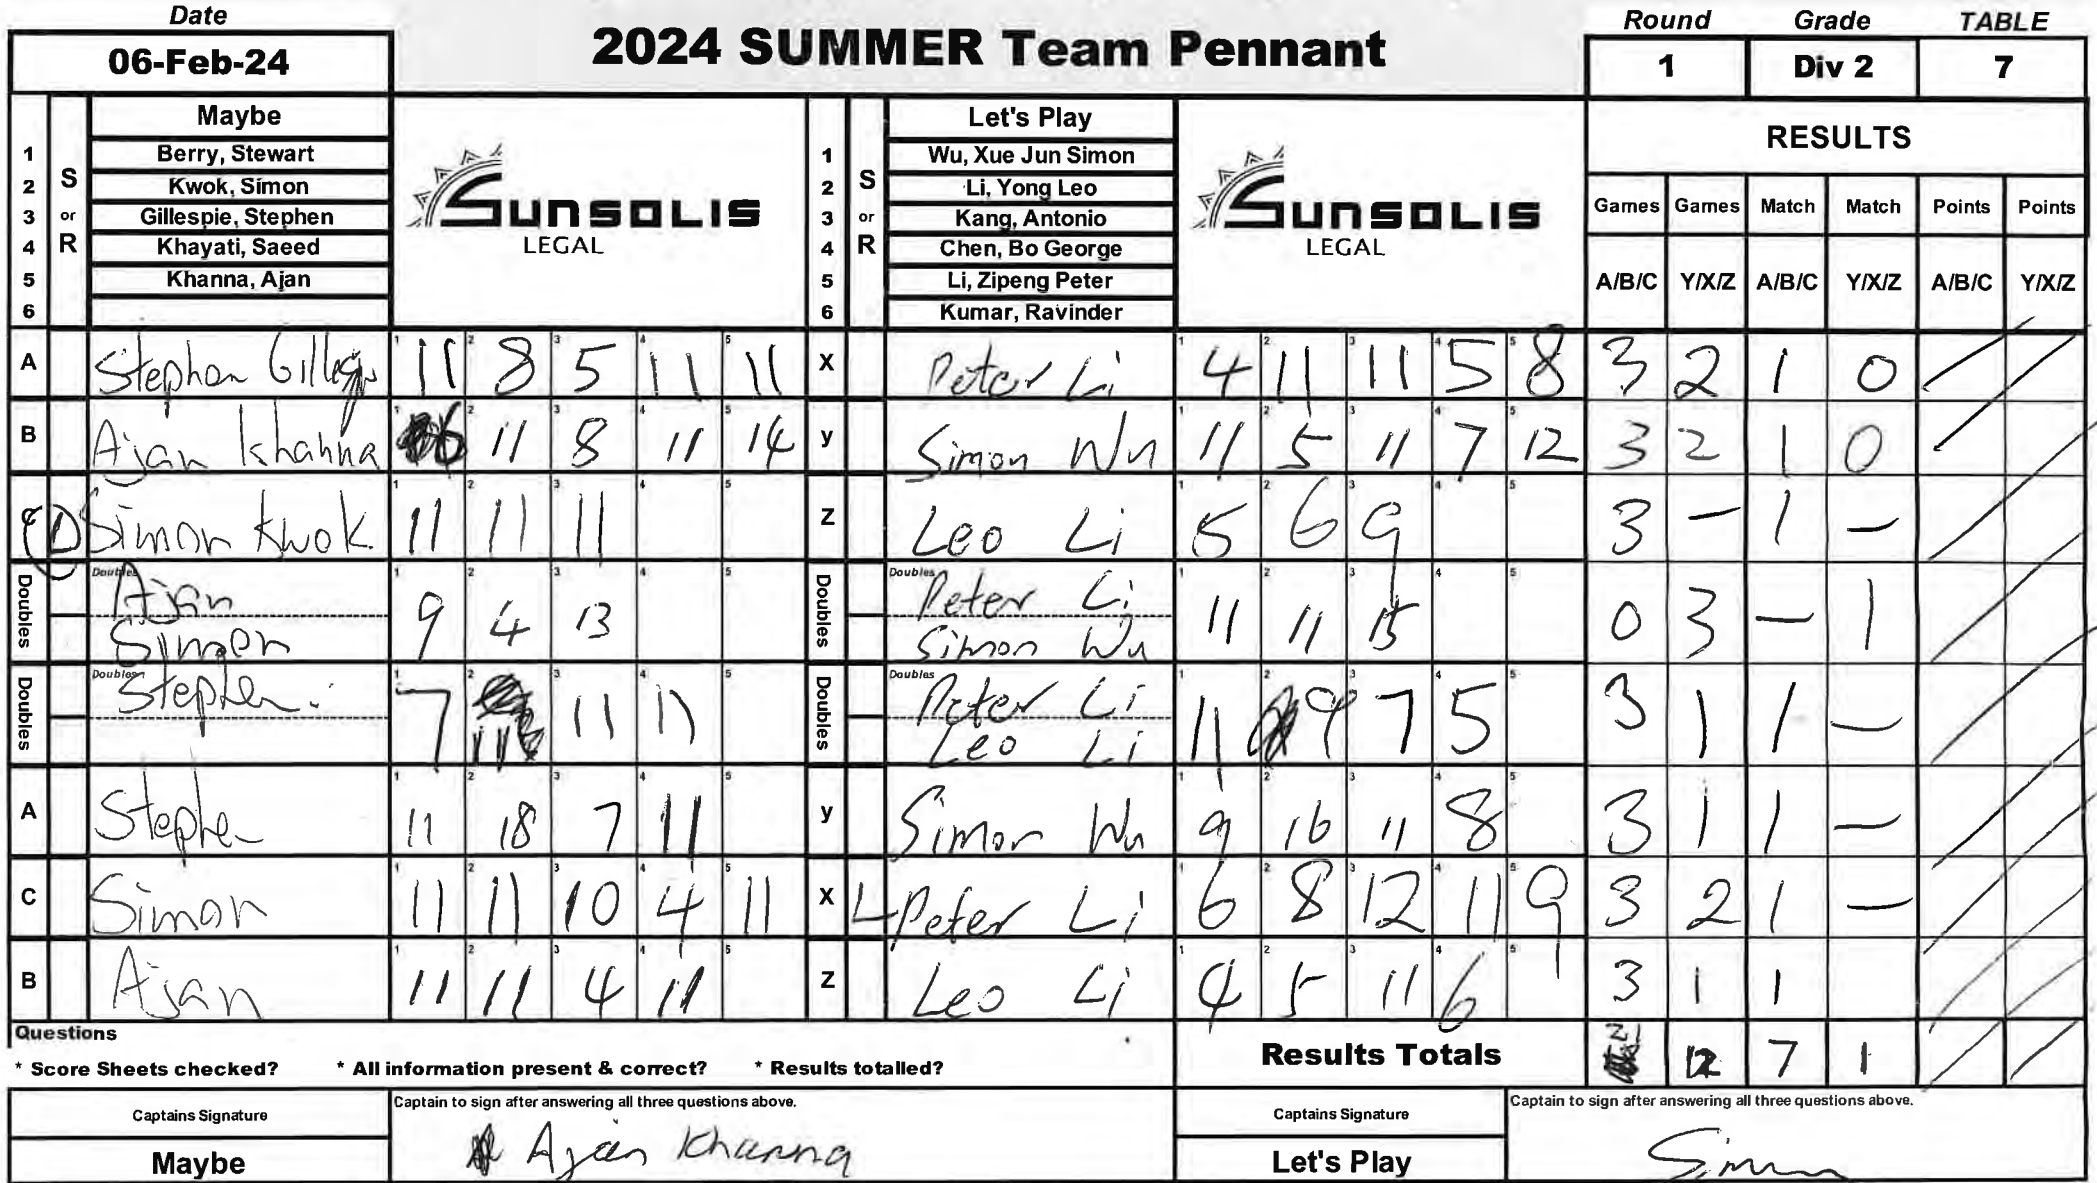 Date
06-Feb-24
2024 SUMMER Team Pennant
Round Grade TABLE
1 Div 2 7
S or R
Maybe
1 Berry, Stewart
2 Kwok, Simon
3 Gillespie, Stephen
4 Khayati, Saeed
5 Khanna, Ajan
6
SUNSOLIS
LEGAL
S or R
Let's Play
1 Wu, Xue Jun Simon
2 Li, Yong Leo
3 Kang, Antonio
4 Chen, Bo George
5 Li, Zipeng Peter
6 Kumar, Ravinder
SUNSOLIS
LEGAL
RESULTS
Games Games Match Match Points Points
A/B/C Y/X/Z A/B/C Y/X/Z A/B/C Y/X/Z
A Stephen 11 8 5 11 11 X Peter Li 4 11 11 5 8 3 2 1 0
B Ajan Khanna 6 11 8 11 14 y Simon Wu 11 5 11 7 12 3 2 1 0
C D Simon Kwok 11 11 11 Z Leo Li 5 6 9 3 – 1 –
Doubles Doubles Ajan 9 4 13 Doubles Doubles Peter Li 11 11 15 0 3 – 1
Simon Simon Wu
Doubles Doubles Stephen. 7 11 11 11 Doubles Doubles Peter Li 11 9 7 5 3 1 1 –
Leo Li
A Stephe 11 18 7 11 y Simon Wu 9 16 11 8 3 1 1 –
C Simon 11 11 10 4 11 X Peter Li 6 8 12 11 9 3 2 1 –
B Ajan 11 11 4 11 Z Leo Li 4 5 11 6 3 1 1
Questions
* Score Sheets checked? * All information present & correct? * Results totalled?
Results Totals 21 12 7 1
Captains Signature
Captain to sign after answering all three questions above.
Maybe
Ajan Khanna
Captains Signature
Captain to sign after answering all three questions above.
Let's Play
Simon